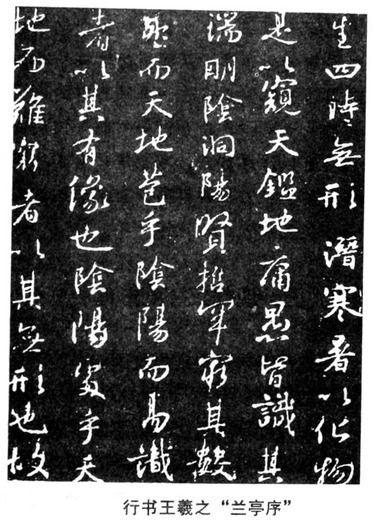 生四時無形潛寒暑以化物
是以窺天鑑地庸愚皆識其
端明陰洞陽賢哲罕窮其數
然而天地苞乎陰陽而易識
者以其有像也陰陽處乎天
地而難窮者以其無形也故
行书王羲之“兰亭序”